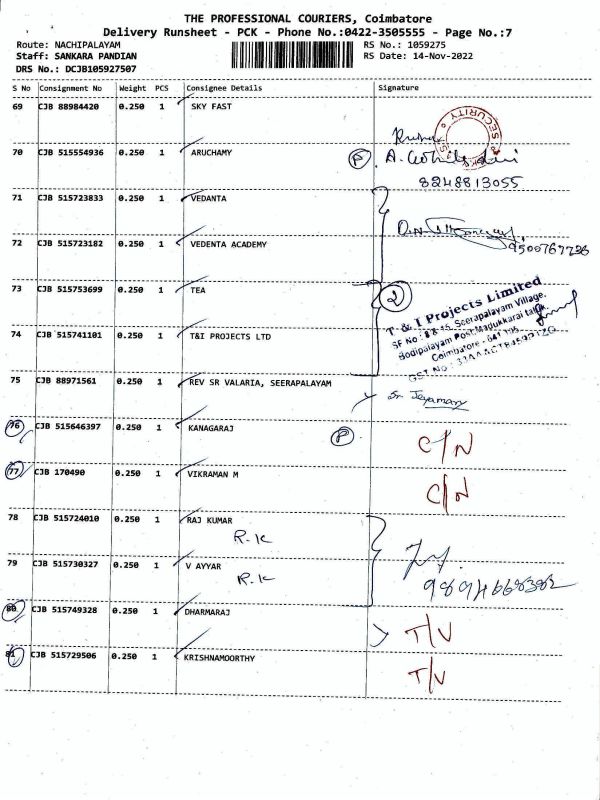 THE PROFESSIONAL COURIERS, Coimbatore
Delivery Runsheet - PCK - Phone No.:0422-3505555 - Page No.:7
Route: NACHIPALAYAM RS No.: 1059275
Staff: SANKARA PANDIAN RS Date: 14-Nov-2022
DRS No.: DCJB105927507
S No Consignment No Weight PCS Consignee Details Signature
69 CJB 88984420 0.250 1 SKY FAST
SECURITY
70 CJB 515554936 0.250 1 ARUCHAMY P
8248813055
71 CJB 515723833 0.250 1 VEDANTA
72 CJB 515723182 0.250 1 VEDENTA ACADEMY
9500767736
73 CJB 515753699 0.250 1 TEA 2
T & I Projects Limited
74 CJB 515741101 0.250 1 T&I PROJECTS LTD
Seerapalayam Village,
Bodipalayam Post, Madukkarai taluk,
Coimbatore - 641 105
75 CJB 88971561 0.250 1 REV SR VALARIA, SEERAPALAYAM
Sr. Jeyamary
76 CJB 515646397 0.250 1 KANAGARAJ P C/N
77 CJB 170490 0.250 1 VIKRAMAN M C/N
78 CJB 515724010 0.250 1 RAJ KUMAR
R.K
79 CJB 515730327 0.250 1 V AYYAR
R.K 9894668382
80 CJB 515749328 0.250 1 DHARMARAJ T/V
81 CJB 515729506 0.250 1 KRISHNAMOORTHY T/V